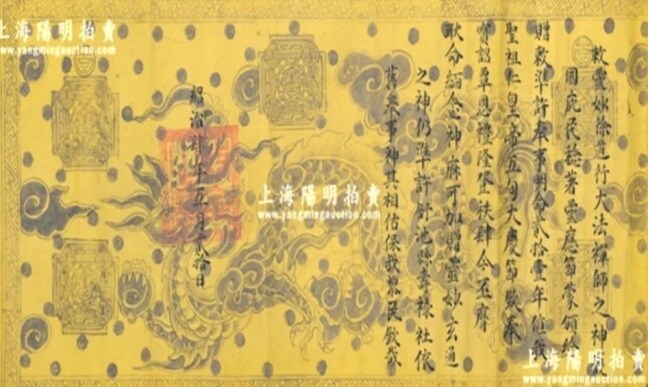 敕靈妙徐道行大法禪師之神
國庇民稔著靈應節蒙頒給
贈敕準許奉事明命貳拾壹年值我
聖祖仁皇帝五旬大慶節欽奉
寶詔覃恩禮隆登秩肆今丕膺
耿命緬念神庥可加贈靈妙玄通
之神仍準許社依
舊奉事神其相佑保我黎民欽哉
紹治年五月貳拾日
上海陽明拍賣
www.yangmingauction.com
上海陽明拍賣
www.yangmingauction.com
上海陽明拍賣
www.yangmingauction.com